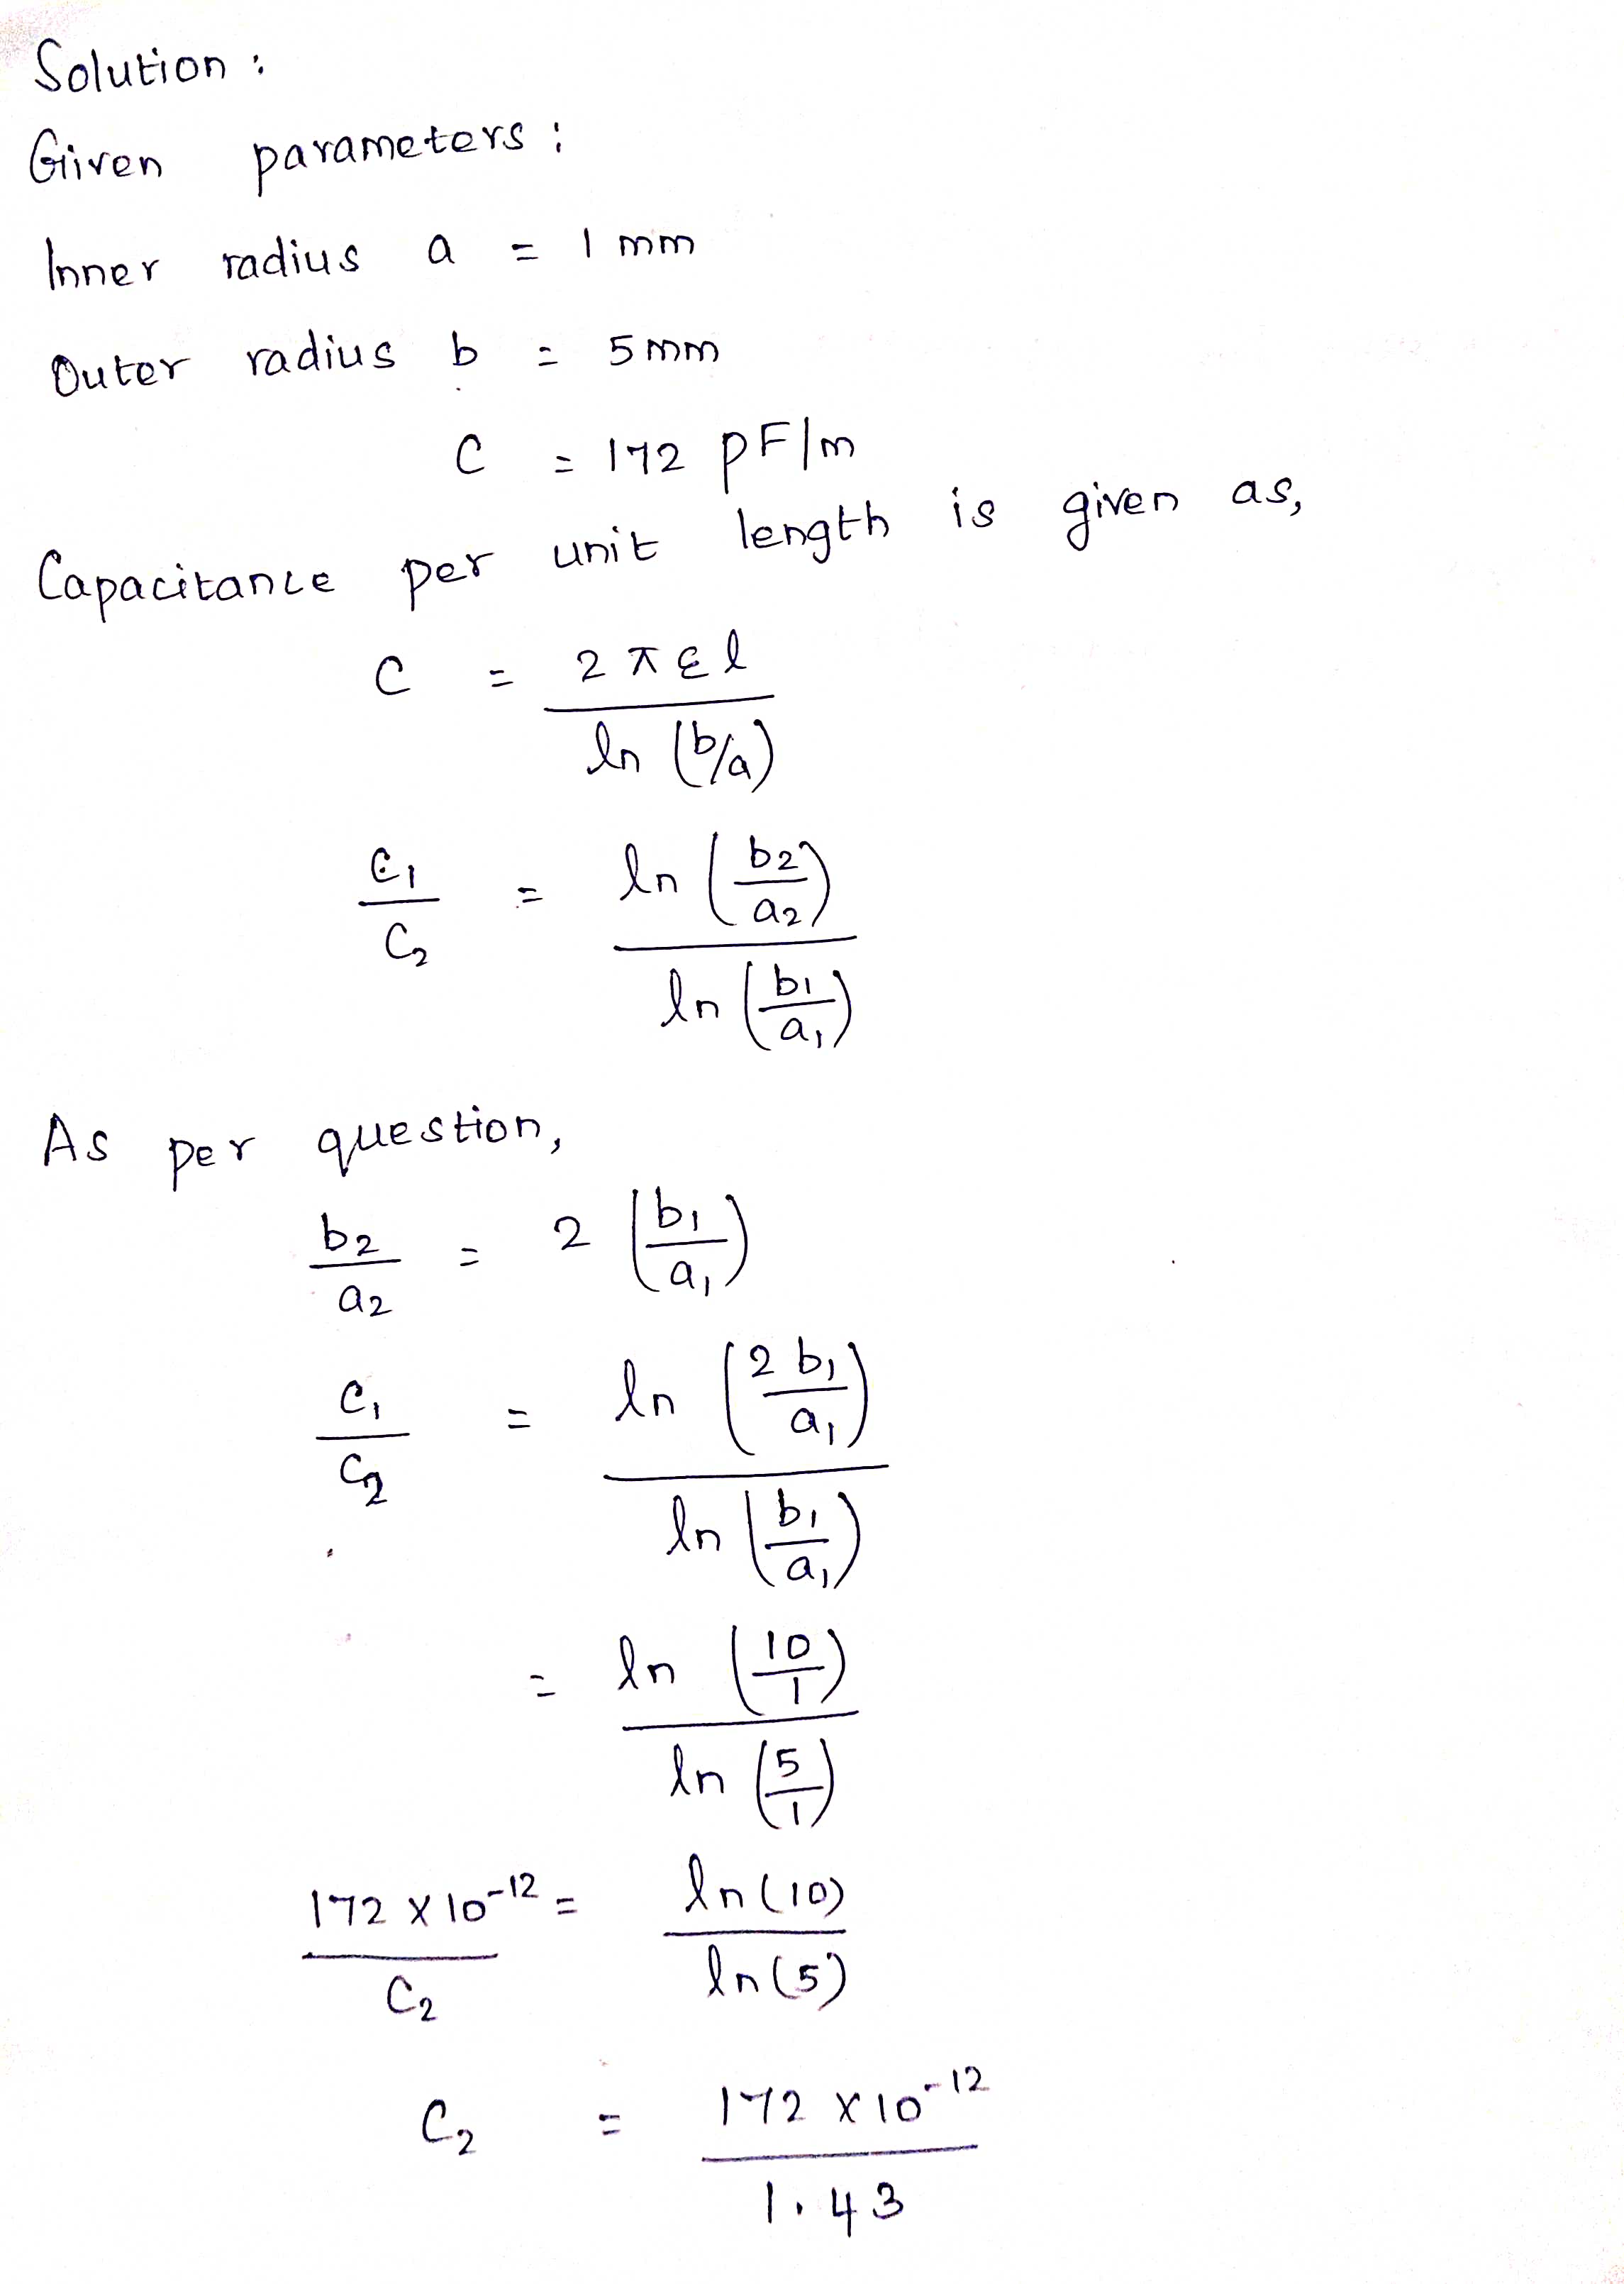 Solution :
Given parameters :
Inner radius a = 1 mm
Outer radius b = 5 mm
C = 172 pF/m
Capacitance per unit length is given as,
C = 2 π ε l
ln (b/a)
C1 = ln (b2/a2)
C2 ln (b1/a1)
As per question,
b2/a2 = 2 (b1/a1)
C1 = ln (2 b1/a1)
C2 ln (b1/a1)
= ln (10/1)
ln (5/1)
172 x 10-12 = ln (10)
C2 ln (5)
C2 = 172 x 10-12
1.43